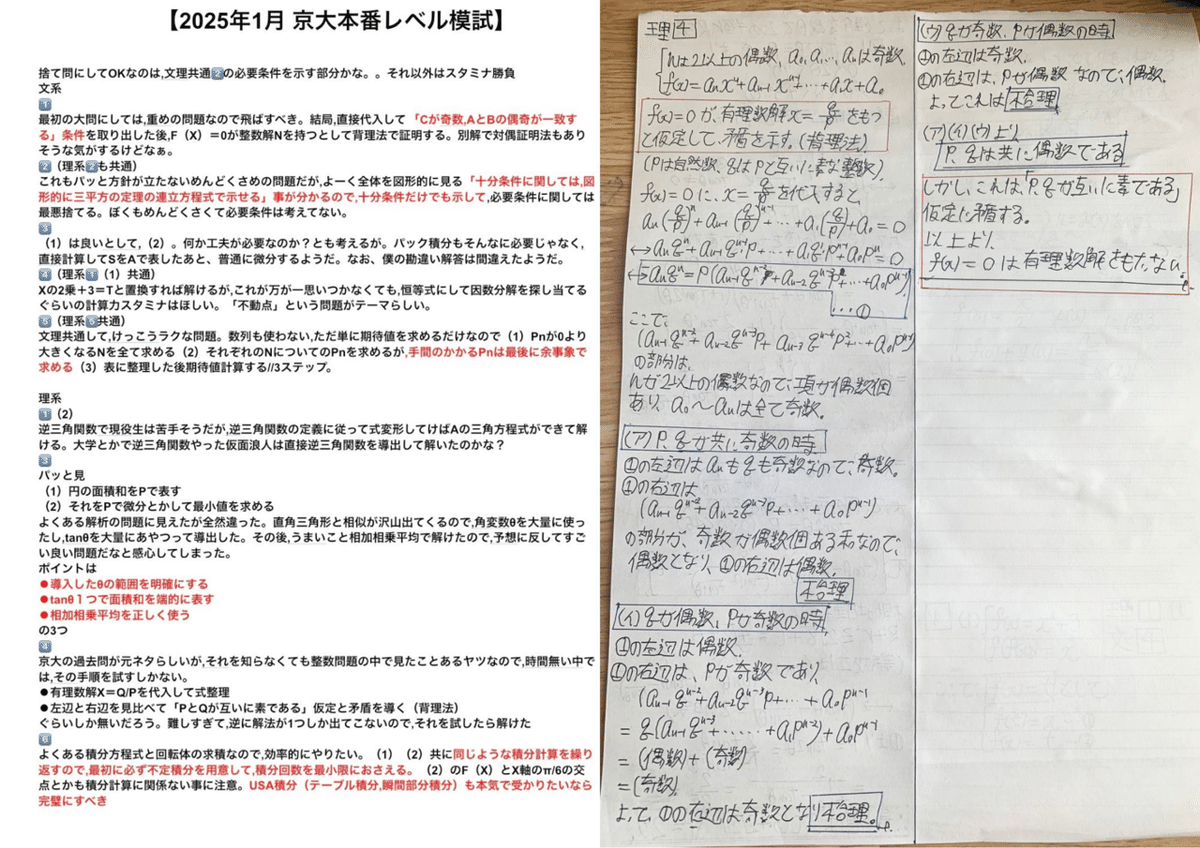 【2025年1月 京大本番レベル模試】
捨て問にしてOKなのは,文理共通2の必要条件を示す部分かな。。それ以外はスタミナ勝負
文系
1
最初の大問にしては,重めの問題なので飛ばすべき。結局,直接代入して「Cが奇数,AとBの偶奇が一致す
る」条件を取り出した後,F（X）＝0が整数解Nを持つとして背理法で証明する。別解で対偶証明法もあり
そうな気がするけどなぁ。
2（理系2も共通）
これもパッと方針が立たないめんどくさめの問題だが,よーく全体を図形的に見る「十分条件に関しては,図
形的に三平方の定理の連立方程式で示せる」事が分かるので,十分条件だけでも示して,必要条件に関しては
最悪捨てる。ぼくもめんどくさくて必要条件は考えてない。
3
（1）は良いとして,（2）。何か工夫が必要なのか？とも考えるが。パック積分もそんなに必要じゃなく,
直接計算してSをAで表したあと、普通に微分するようだ。なお、僕の勘違い解答は間違えたようだ。
4（理系1（1）共通）
Xの2乗＋3＝Tと置換すれば解けるが,これが万が一思いつかなくても,恒等式にして因数分解を探し当てる
ぐらいの計算力スタミナはほしい。「不動点」という問題がテーマらしい。
5（理系5共通）
文理共通して,けっこうラクな問題。数列も使わない,ただ単に期待値を求めるだけなので（1）Pnが0より
大きくなるNを全て求める（2）それぞれのNについてのPnを求めるが,手間のかかるPnは最後に余事象で
求める（3）表に整理した後期待値計算する//3ステップ。
理系
1（2）
逆三角関数で現役生は苦手そうだが,逆三角関数の定義に従って式変形してけばAの三角方程式ができて解
ける。大学とかで逆三角関数やった仮面浪人は直接逆三角関数を導出して解いたのかな？
3
パッと見
（1）円の面積和をPで表す
（2）それをPで微分とかして最小値を求める
よくある解析の問題に見えたが全然違った。直角三角形と相似が沢山出てくるので,角変数θを大量に使っ
たし,tanθを大量にあやつって導出した。その後,うまいこと相加相乗平均で解けたので,予想に反してすご
い良い問題だなと感心してしまった。
ポイントは
●導入したθの範囲を明確にする
●tanθ１つで面積和を端的に表す
●相加相乗平均を正しく使う
の3つ
4
京大の過去問が元ネタらしいが,それを知らなくても整数問題の中で見たことあるヤツなので,時間無い中で
は,その手順を試すしかない。
●有理数解X＝Q/Pを代入して式整理
●左辺と右辺を見比べて「PとQが互いに素である」仮定と矛盾を導く（背理法）
ぐらいしか無いだろう。難しすぎて,逆に解法が1つしか出てこないので,それを試したら解けた
6
よくある積分方程式と回転体の求積なので,効率的にやりたい。（1）（2）共に同じような積分計算を繰り
返すので,最初に必ず不定積分を用意して,積分回数を最小限におさえる。（2）のF（X）とX軸のπ/6の交
点とかも積分計算に関係ない事に注意。USA積分（テーブル積分,瞬間部分積分）も本気で受かりたいなら
完璧にすべき
理4
nは2以上の偶数, a₀, a₁, …, aₙは奇数.
f(x)=aₙxⁿ+aₙ₋₁xⁿ⁻¹+…+a₁x+a₀
f(x)=0が、有理数解x=q/pをもつ
と仮定して、矛盾を示す。(背理法)
(Pは自然数、qはPと互いに素な整数)
f(x)=0に、x=q/pを代入すると、
aₙ(q/p)ⁿ+aₙ₋₁(q/p)ⁿ⁻¹+…+a₁(q/p)+a₀=0
↔aₙqⁿ+aₙ₋₁qⁿ⁻¹p+…+a₁q¹pⁿ⁻¹+a₀pⁿ=0
↔-aₙqⁿ=P(aₙ₋₁qⁿ⁻¹+aₙ₋₂qⁿ⁻²p+…+a₀pⁿ⁻¹)
…①
ここで、
(aₙ₋₁qⁿ⁻²+aₙ₋₂qⁿ⁻³p+aₙ₋₃qⁿ⁻⁴p²+…+a₀pⁿ⁻¹)
の部分は、
nが2以上の偶数なので、項が偶数個
あり、a₀〜aₙは全て奇数。
(ア) P, qが共に奇数の時
①の左辺はaₙもqも奇数なので、奇数。
①の右辺は
(aₙ₋₁qⁿ⁻²+aₙ₋₂qⁿ⁻³p+…+a₀pⁿ⁻¹)
の部分が、奇数が偶数個ある和なので、
偶数となり、①の右辺は偶数.
不合理
(イ) qが偶数、Pが奇数の時
①の左辺は偶数.
①の右辺は、Pが奇数であり、
(aₙ₋₁qⁿ⁻²+aₙ₋₂qⁿ⁻³p+…+a₀pⁿ⁻¹
=q(aₙ₋₁qⁿ⁻³+……+a₁pⁿ⁻²)+a₀pⁿ⁻¹
=(偶数)+(奇数)
=(奇数)
よって、①の右辺は奇数となり不合理。
(ウ) qが奇数、Pが偶数の時
①の左辺は奇数.
①の右辺は、Pが偶数なので、偶数.
よってこれは不合理
(ア)(イ)(ウ)より
P, qは共に偶数である
しかし、これは「P, qが互いに素である」
仮定に矛盾する。
以上より、
f(x)=0は有理数解をもたない。